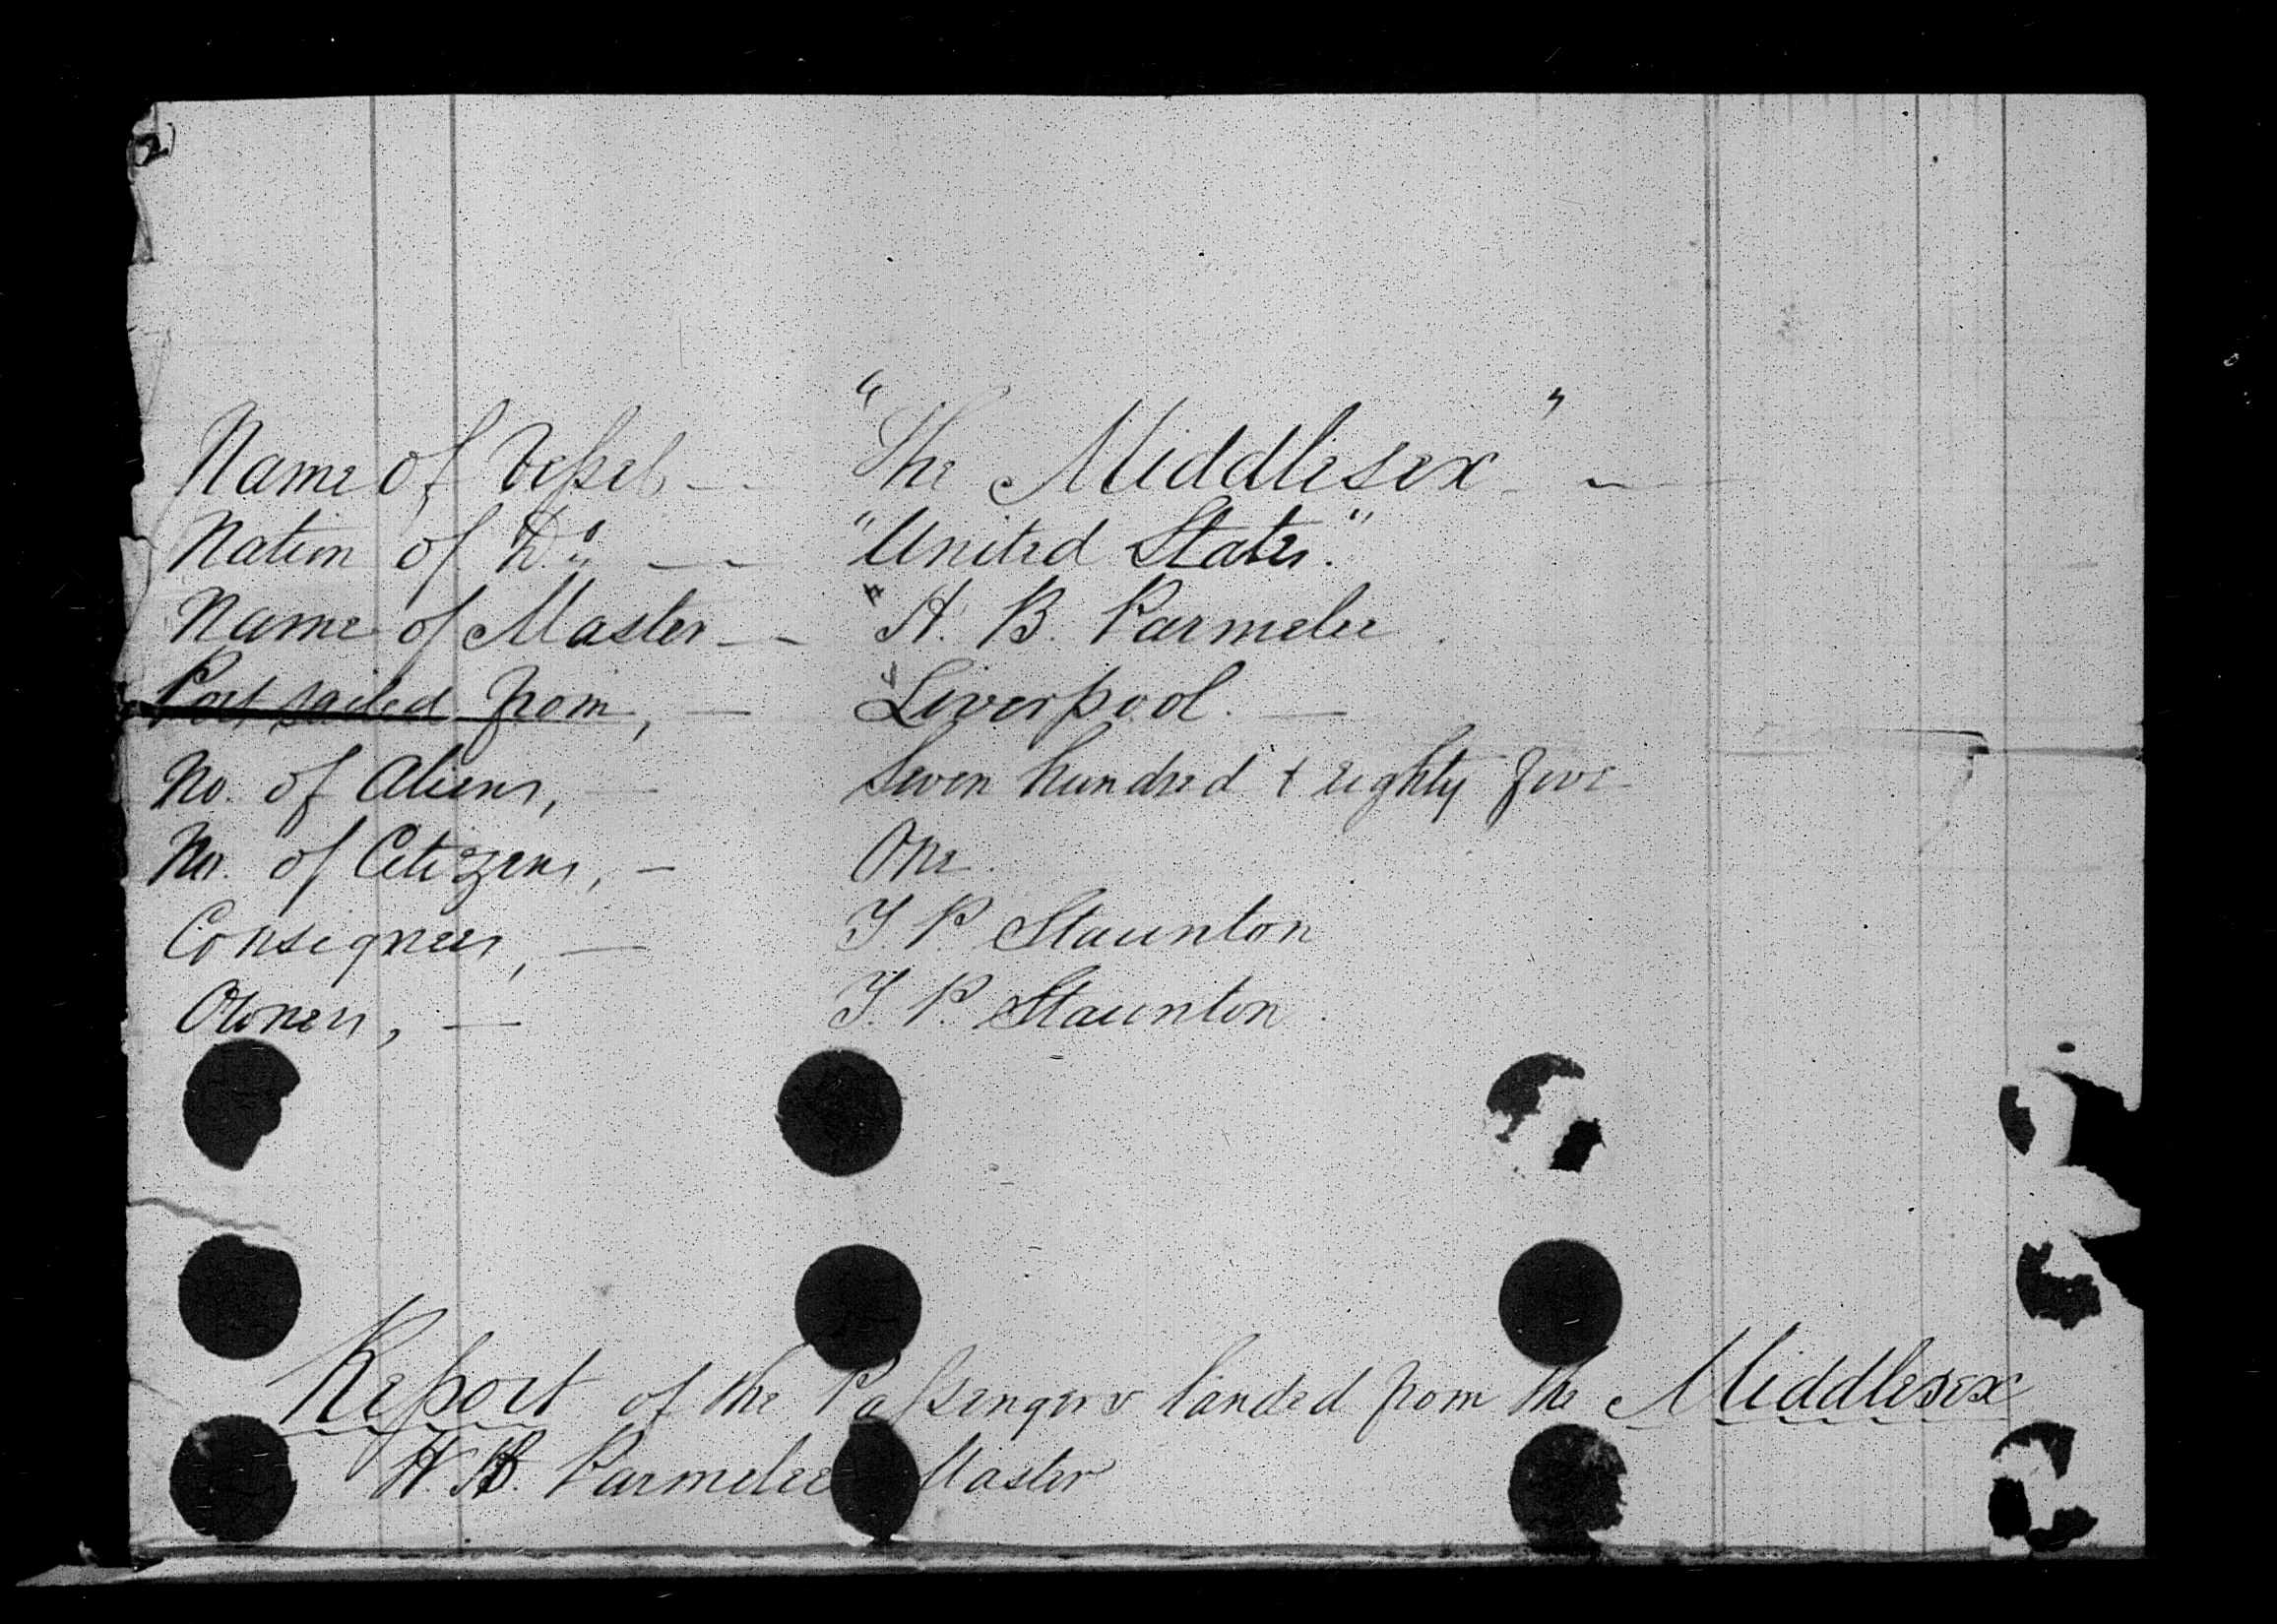 Name of Vessel — "The Middlesex" —
Nation of Do. — "United States."
Name of Master — "H. B. Parmelee.
Port sailed from, — "Liverpool. —
No. of Aliens, — Seven hundred & eighty five
No. of Citizens, — One.
Consignees, — T P. Staunton
Owners, — T. P. Staunton.
Report of the Passengers landed from the Middlesex
H. B. Parmelee Master